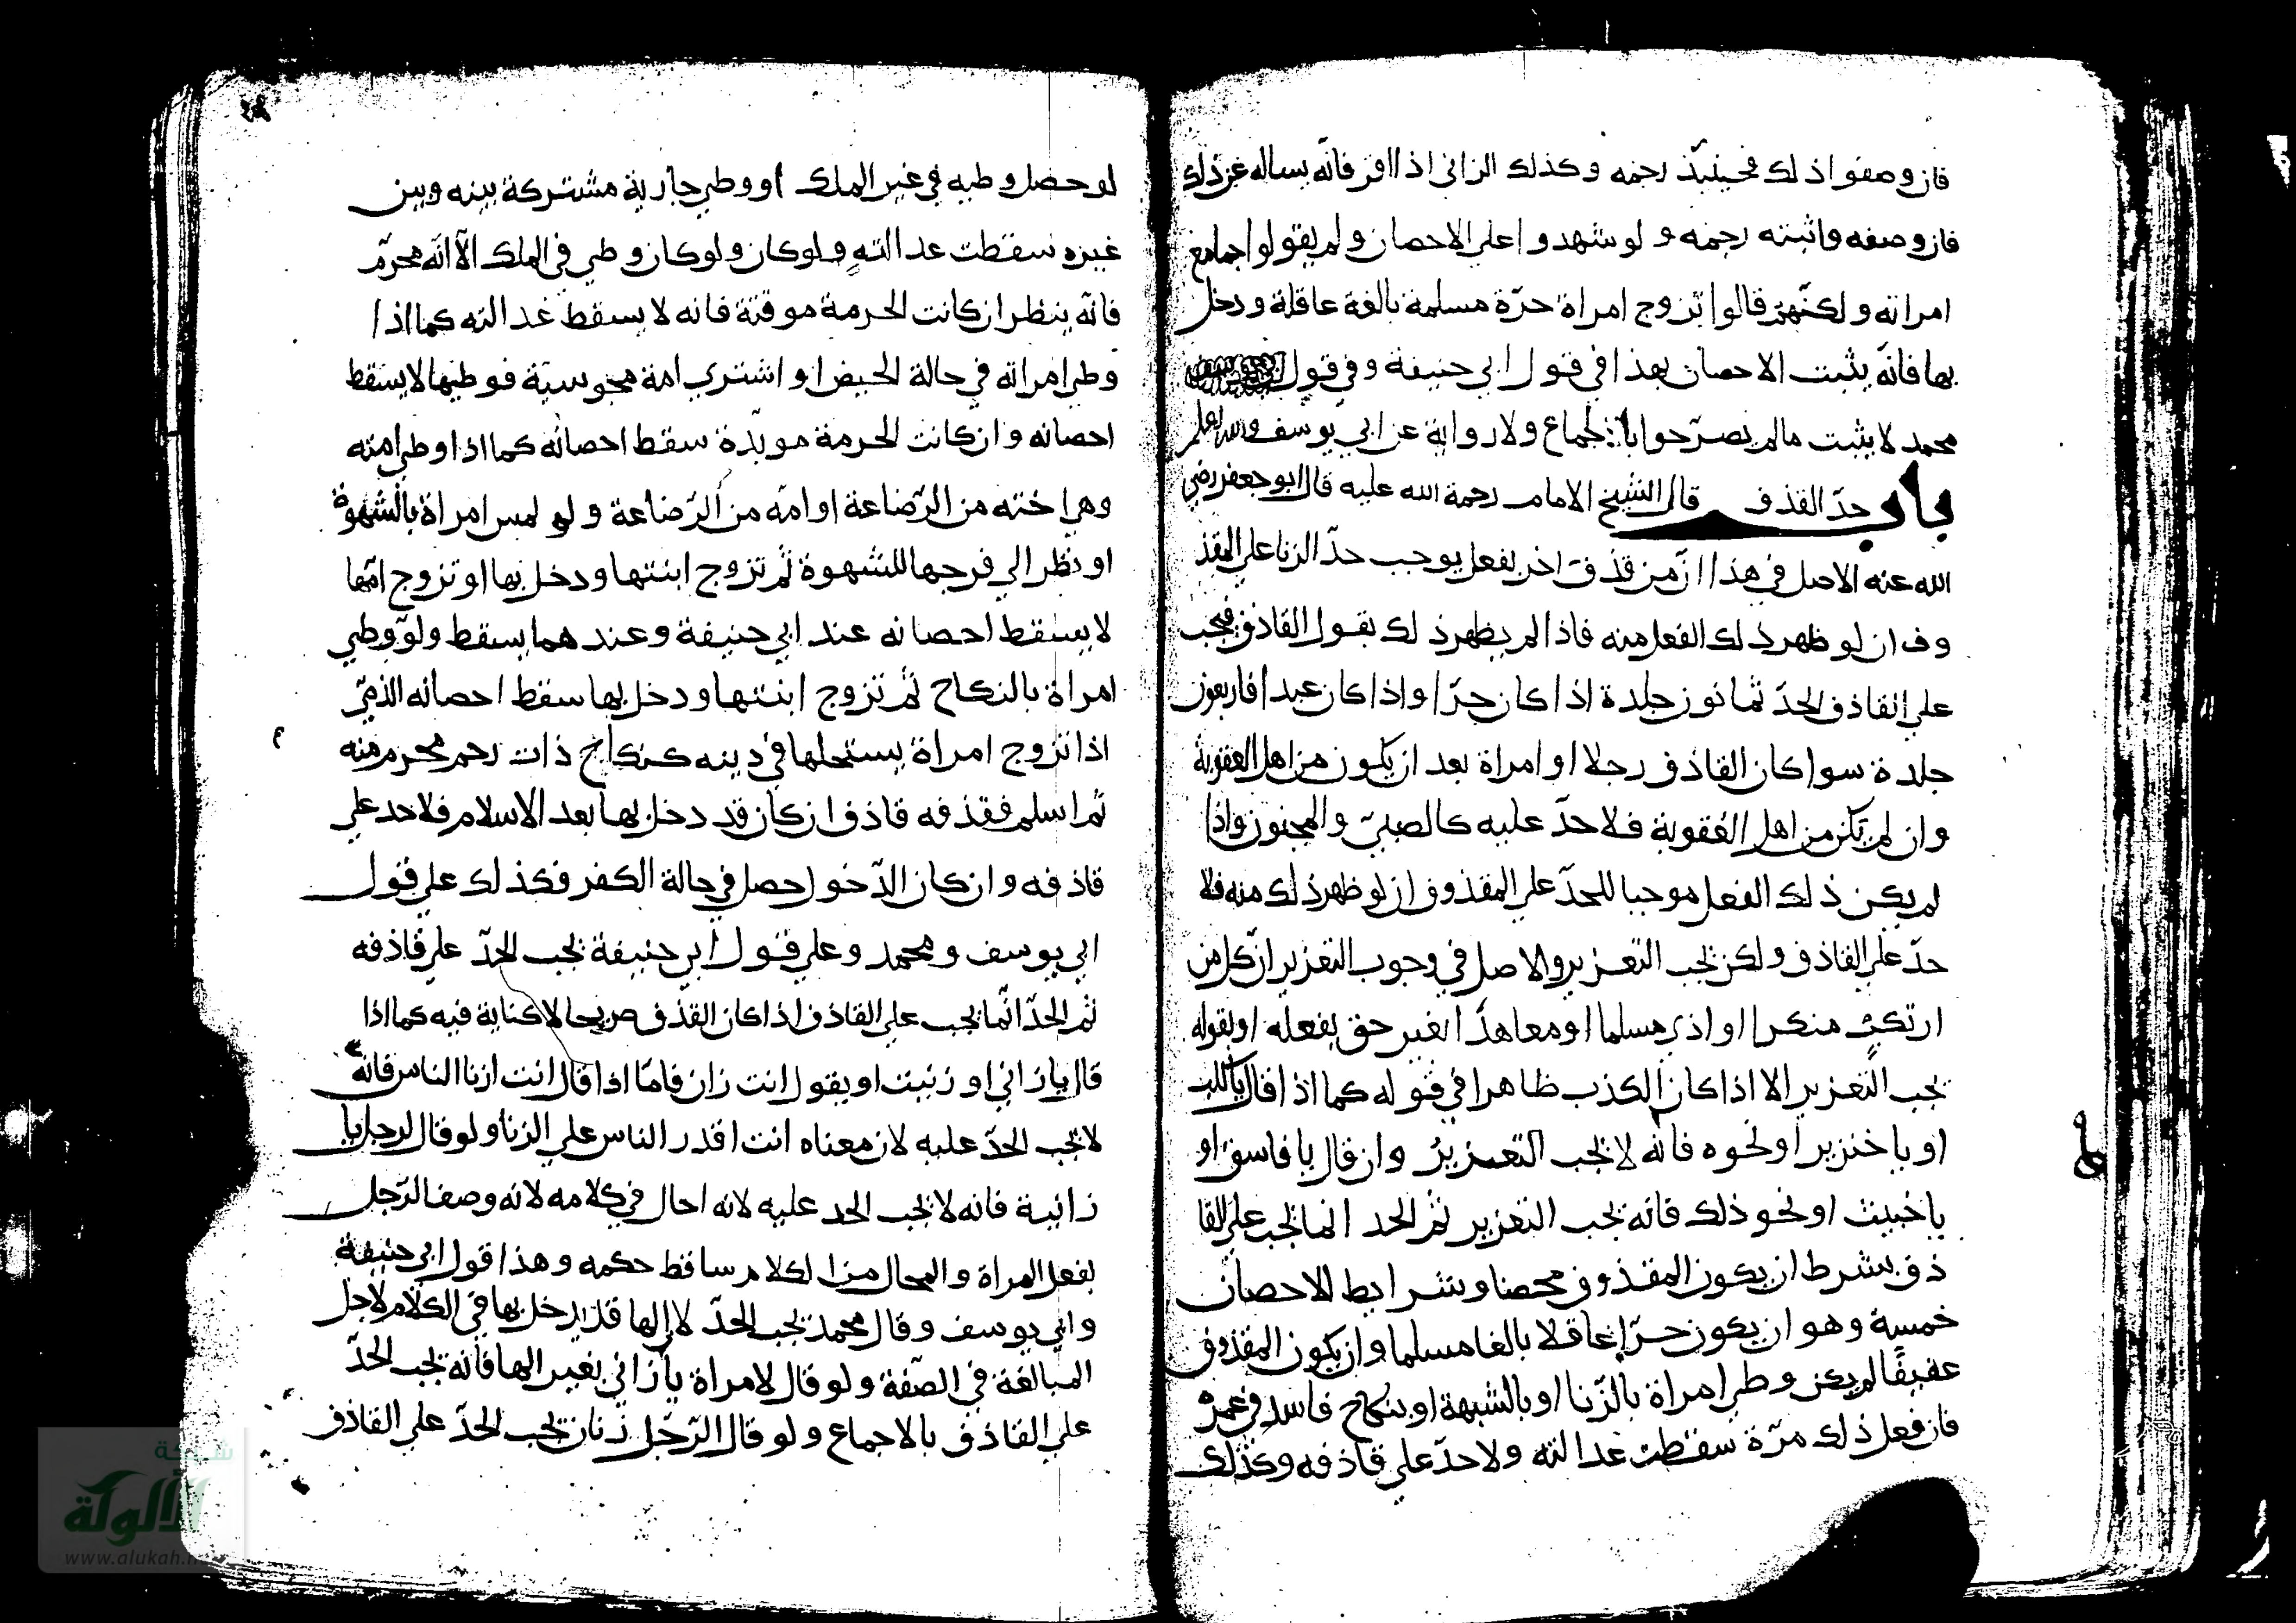 فان وصفوا ذلك فحينئذ رجمه وكذلك الزاني اذا اقر فانه يساله عن ذلك
فان وصفه واثبته رجمه ولو شهدوا على الاحصان ولم يقولوا جامع
امراته ولكنهم قالوا تزوج امراة حرّة مسلمة بالغة عاقلة ودخل
بها فانه يثبت الاحصان بهذا في قول ابي حنيفة وفي قول
محمد لا يثبت مالم يصرّحوا بالجماع ولا رواية عن ابي يوسف والله اعلم
باب حدّ القذف قال الشيخ الامام رحمة الله عليه قال ابو جعفر رضي
الله عنه الاصل في هذا انّ من قذف اخر بفعل يوجب حدّ الزنا على المقذ
وف ان لو ظهر ذلك الفعل منه فاذا لم يظهر ذلك بقول القاذف فيجب
على القاذف الحدّ ثمانون جلدة اذا كان حرّا واذا كان عبدا فاربعون
جلدة سوا كان القاذف رجلا او امراة بعد ان يكون من اهل العقوبة
وان لم يكن من اهل العقوبة فلا حدّ عليه كالصبيّ والمجنون واذا
لم يكن ذلك الفعل موجبا للحدّ على المقذوف ان لو ظهر ذلك منه فلا
حدّ على القاذف ولكن يجب التعزير والاصل في وجوب التعزير ان كل من
ارتكب منكرا او اذى مسلما او معاهدا بغير حق بفعله او بقوله
يجب التعزير الا اذا كان الكذب ظاهرا في قوله كما اذا قال يا كلب
او يا خنزير او نحوه فانه لا يجب التعزيرُ وان قال يا فاسق او
يا خبيث او نحو ذلك فانه يجب التعزير ثم الحد انما يجب على القا
ذف بشرط ان يكون المقذوف محصنا وشرايط الاحصان
خمسة وهو ان يكون حرّا عاقلا بالغا مسلما وان يكون المقذوف
عفيفًا لم يكن وطي امراة بالزّنا او بالشبهة او بنكاح فاسد في عمره
فان فعل ذلك مرّة سقطت عدالته ولا حدّ على قاذفه وكذلك
لو حصل وطيه في غير الملك او وطي جارية مشتركة بينه وبين
غيره سقطت عدالته ولوكان ولوكان وطي في الملك الّا انّه محرّم
فانّه ينظر ان كانت الحرمة موقتة فانه لا يسقط عدالته كما اذا
وطي امراته في حالة الحيض او اشترى امة مجوسيّة فوطيها لا يسقط
احصانه وان كانت الحرمة موبّدة سقط احصانُه كما اذا وطي امته
وهي اخته من الرّضاعة او امّه من الرّضاعة ولو لمس امراة بالشهوة
او نظر الى فرجها للشهوة ثم تزوج ابنتها ودخل بها او تزوج امّها
لا يسقط احصانه عند ابي حنيفة وعندهما يسقط ولو وطي
امراة بالنكاح ثم تزوج ابنتها ودخل بها سقط احصانه الذمّي
اذا تزوج امراة يستحلها في دينه كنكاح ذات رحم محرم منه
ثم اسلم فقذفه قاذف ان كان قد دخل بها بعد الاسلام فلا حد على
قاذفه وان كان الدّخول حصل في حالة الكفر فكذلك على قول
ابي يوسف ومحمد وعلى قول ابي حنيفة يجب الحدّ على قاذفه
ثم الحدّ انّما يجب على القاذف اذا كان القذف صريحا لا كناية فيه كما اذا
قال يا زاني او زنيت او يقول انت زان فامّا اذا قال انت ازنا الناس فانّه
لا يجب الحدّ عليه لان معناه انت اقدر الناس على الزنا ولو قال لرجل يا
زانية فانه لا يجب الحد عليه لانه احال في كلامه لانه وصف الرّجل
بفعل المراة والمحال من الكلام ساقط حكمه وهذا قول ابي حنيفة
وابي يوسف وقال محمد يجب الحدّ لا الها قد يدخل بها في الكلام لاجل
المبالغة في الصّفة ولو قال لامراة يا زاني بغير الها فانه يجب الحدّ
على القاذف بالاجماع ولو قال الرّجل زنات يجب الحدّ على القاذف
شبكة
الألوكة